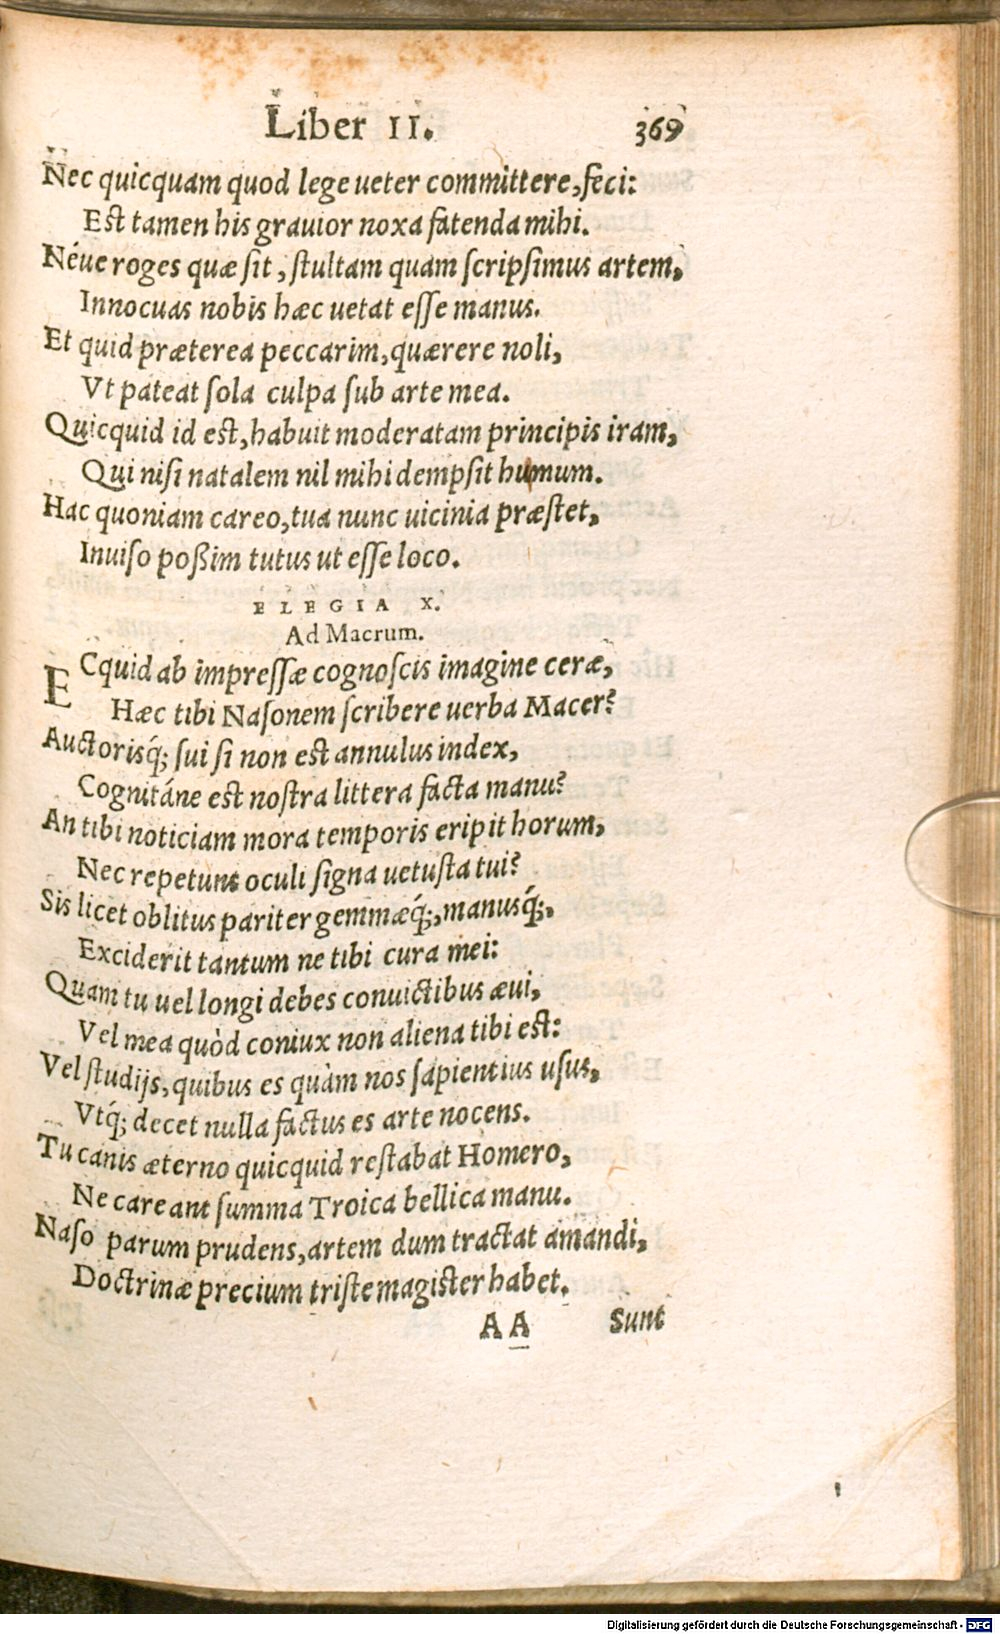 Liber II. 369
Nec quicquam quod lege ueter committere, feci:
Est tamen his grauior noxa fatenda mihi.
Néue roges quæ sit, ſtultam quam ſcripſimus artem,
Innocuas nobis hæc uetat eſſe manus.
Et quid præterea peccarim, quærere noli,
Vt pateat ſola culpa ſub arte mea.
Quicquid id eſt, habuit moderatam principis iram,
Qui niſi natalem nil mihi dempſit humum.
Hac quoniam careo, tua nunc uicinia præſtet,
Inuiſo poßim tutus ut eſſe loco.
ELEGIA X.
Ad Macrum.
ECquid ab impreſſæ cognoſcis imagine ceræ,
Hæc tibi Naſonem ſcribere uerba Macer?
Auctorisq́; ſui ſi non eſt annulus index,
Cognitáne eſt noſtra littera facta manu?
An tibi noticiam mora temporis eripit horum,
Nec repetunt oculi ſigna uetuſta tui?
Sis licet oblitus pariter gemmæq́;, manusq́;,
Exciderit tantum ne tibi cura mei:
Quam tu uel longi debes conuictibus æui,
Vel mea quòd coniux non aliena tibi eſt:
Vel ſtudijs, quibus es quàm nos ſapientius uſus,
Vtq́; decet nulla factus es arte nocens.
Tu canis æterno quicquid reſtabat Homero,
Ne careant ſumma Troica bellica manu.
Naſo parum prudens, artem dum tractat amandi,
Doctrinæ precium triſte magiſter habet.
AA Sunt
Digitalisierung gefördert durch die Deutsche Forschungsgemeinschaft - DFG